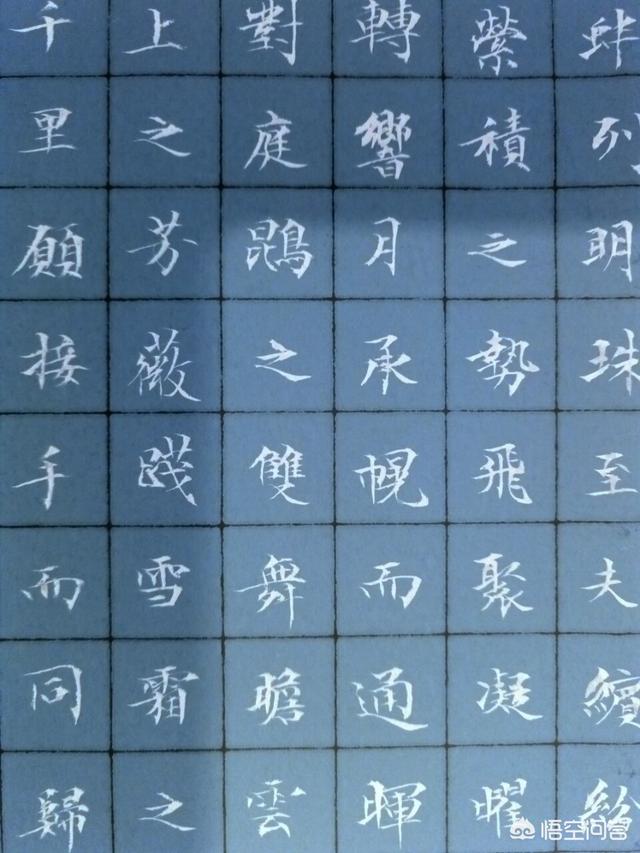 蚌列明珠至夫繽紛
縈積之勢飛聚凝曜
轉響月承幌而通暉
對庭鵾之雙舞瞻雲
上之芬薇踐雪霜之
千里願接手而同歸
悟空问答